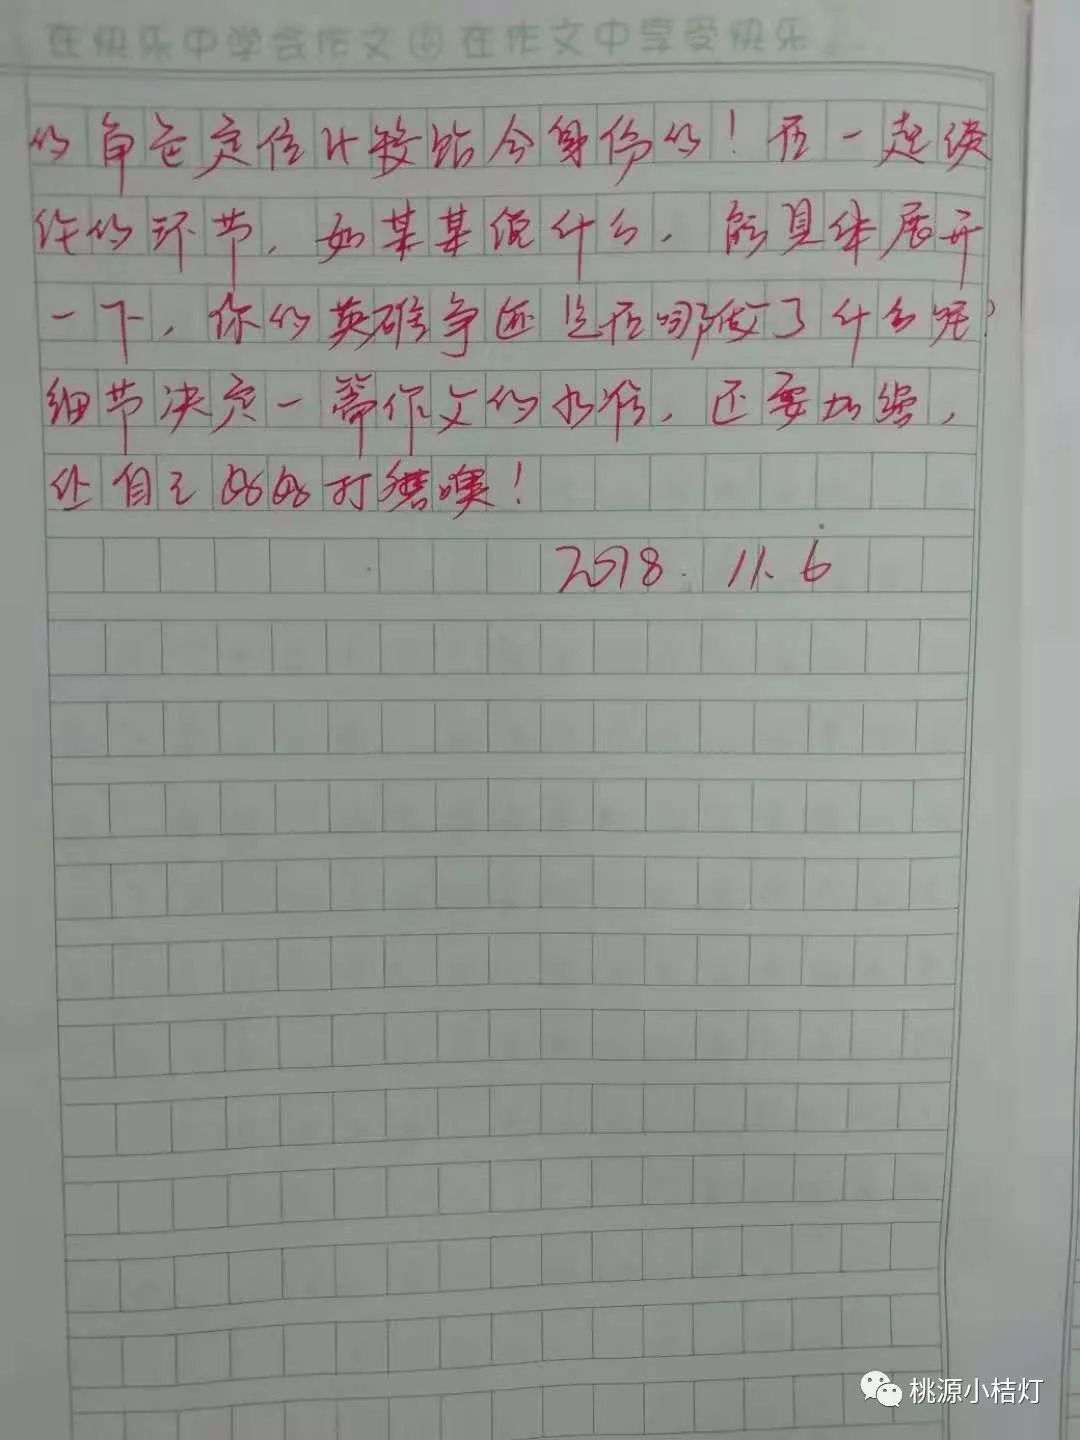 在快乐中学会作文 在作文中享受快乐
的角色定位比较贴合身份的！在一起续
作的环节，如某某说什么，能具体展开
一下，你的英雄争还是在哪做了什么呢？
细节决定一篇作文的水准，还要加强，
让自己好好打磨噢！
2018.11.6
桃源小桔灯